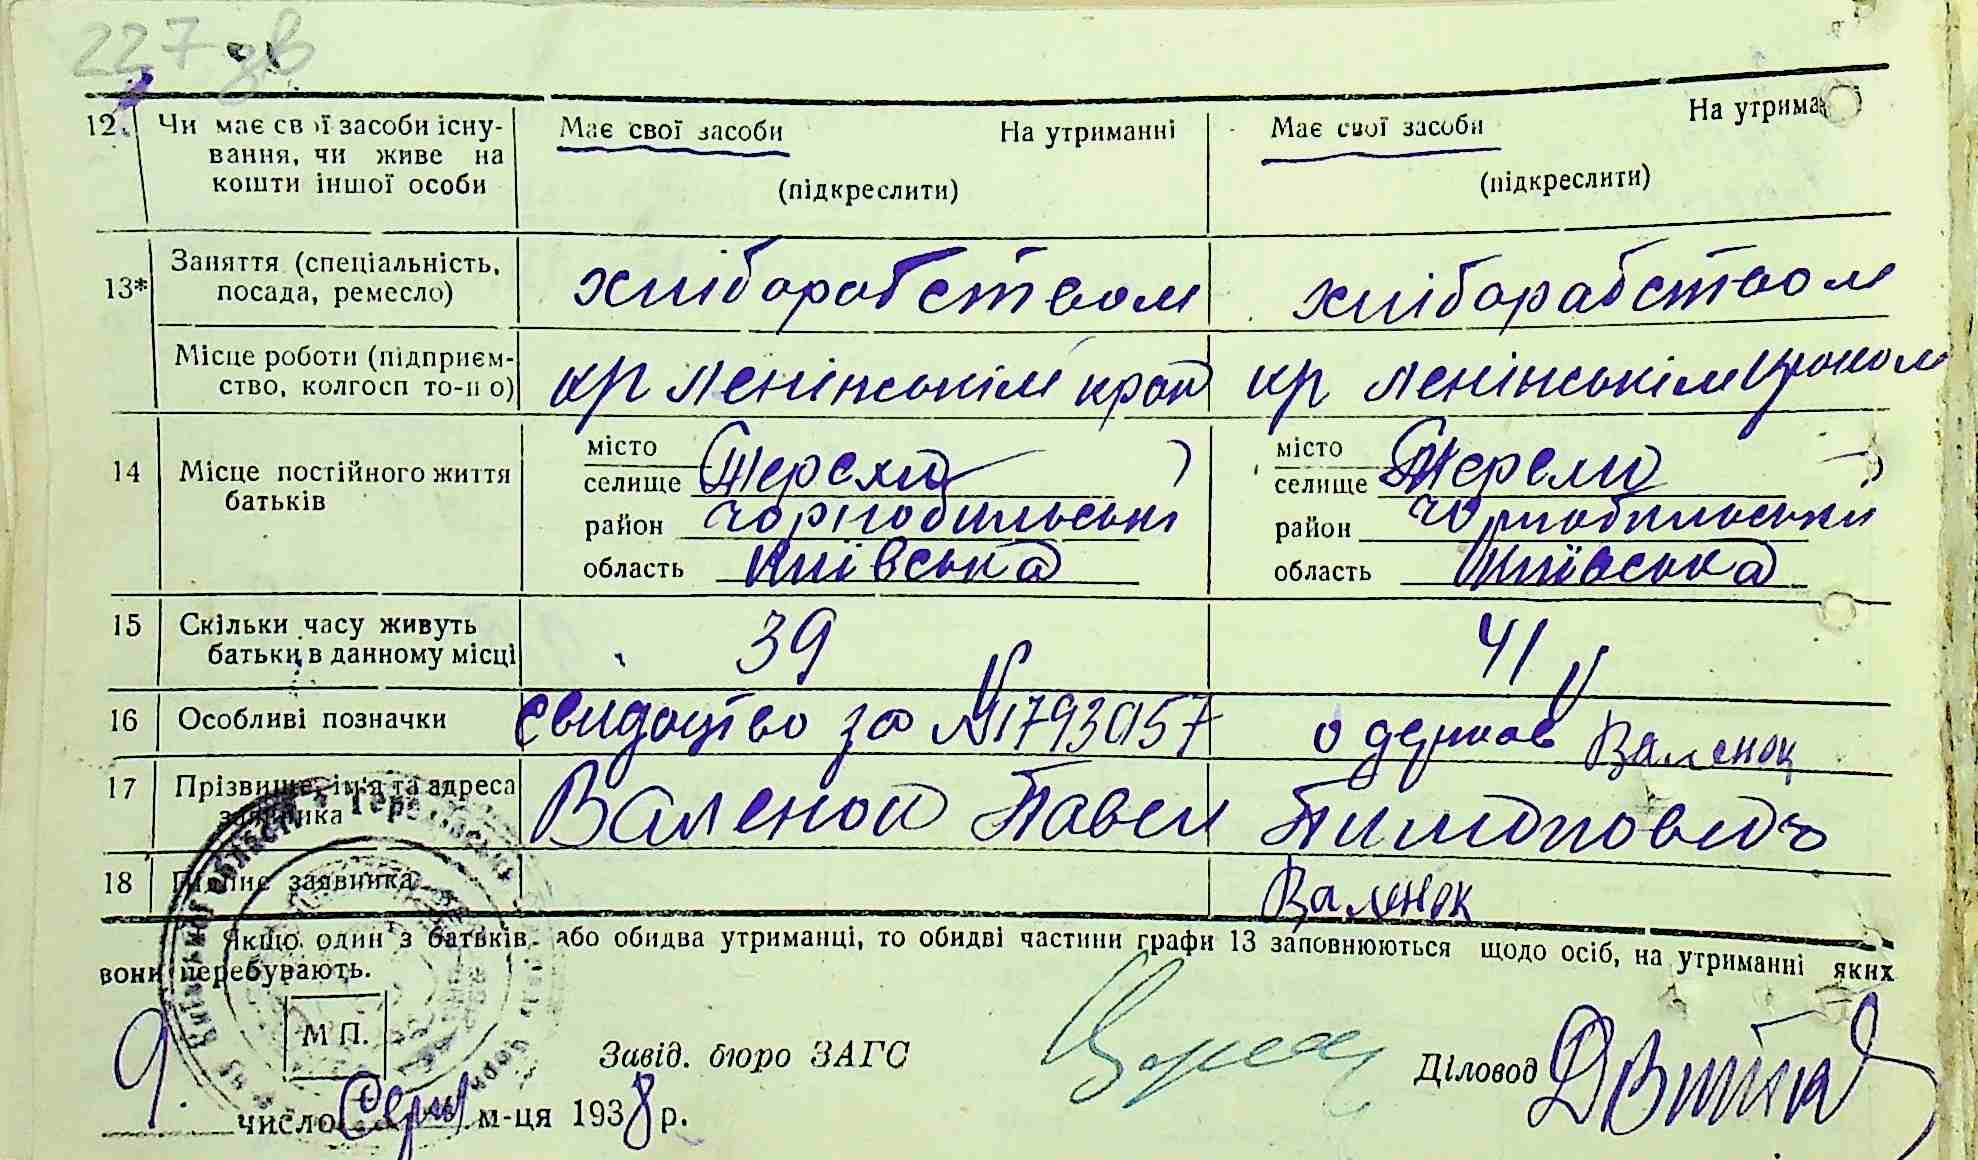 227 зв
12. Чи має свої засоби існу- Має свої засоби На утриманні Має свої засоби На утрима
вання, чи живе на
кошти іншої особи (підкреслити) (підкреслити)
13* Заняття (спеціальність, хліборобством хліборабством
посада, ремесло)
Місце роботи (підприєм- кр ленінськім кр ленінськім
ство, колгосп то-що)
14 Місце постійного життя місто місто
батьків селище Терехи селище
район чорнобильські район чорнобильський
область київська область київська
15 Скільки часу живуть 39 41
батьки в данному місці
16 Особливі позначки свидоцтво за № 1793057 одержав Валенок
17 Прізвище, ім'я та адреса Валенок Павел Тимопович
заявника
18 Підпис заявника Валенок
Якщо один з батьків, або обидва утриманці, то обидві частини графи 13 заповнюються щодо осіб, на утриманні яких
вони перебувають.
М П.
Завід. бюро ЗАГС Діловод
9 число Серп м-ця 1938 р.